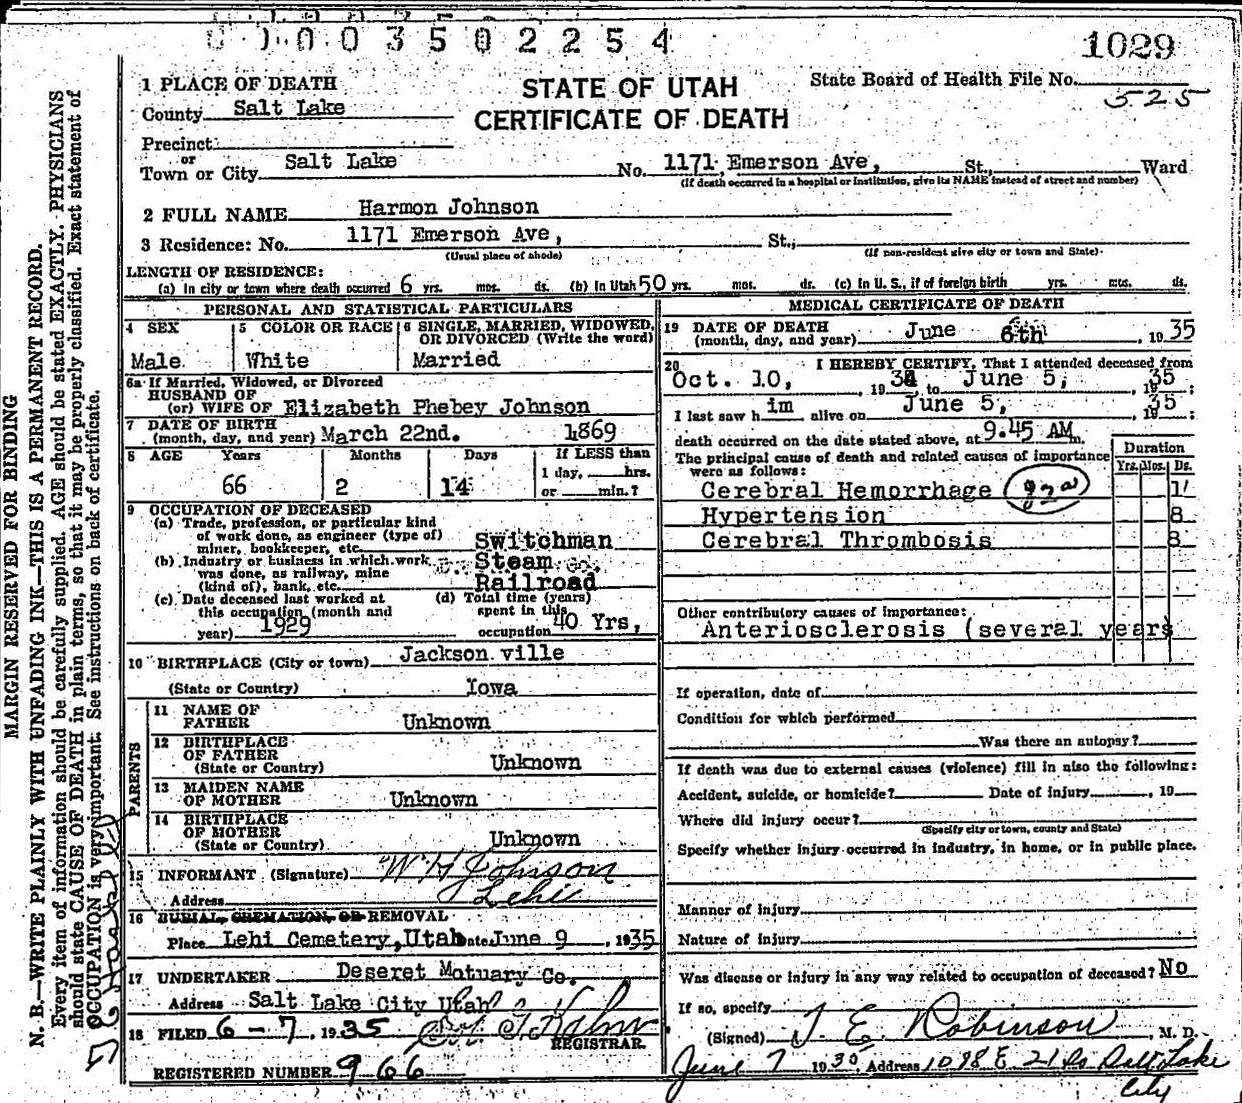 0 0 0 3 5 0 2 2 5 4
1029
1 PLACE OF DEATH
County Salt Lake
STATE OF UTAH
CERTIFICATE OF DEATH
State Board of Health File No.
525
Precinct
or
Town or City Salt Lake No. 1171 Emerson Ave, St., Ward
(If death occurred in a hospital or institution, give its NAME instead of street and number)
2 FULL NAME Harmon Johnson
3 Residence: No. 1171 Emerson Ave, St.,
(Usual place of abode) (If non-resident give city or town and State)
LENGTH OF RESIDENCE:
(a) In city or town where death occurred 6 yrs. mos. ds. (b) In Utah 50 yrs. mos. ds. (c) In U. S., if of foreign birth yrs. mos. ds.
PERSONAL AND STATISTICAL PARTICULARS
4 SEX
Male
5 COLOR OR RACE
White
6 SINGLE, MARRIED, WIDOWED,
OR DIVORCED (Write the word)
Married
6a If Married, Widowed, or Divorced
HUSBAND OF
(or) WIFE OF Elizabeth Phebey Johnson
7 DATE OF BIRTH
(month, day, and year) March 22nd. 1869
8 AGE Years Months Days If LESS than
1 day, hrs.
66 2 14 or min.?
9 OCCUPATION OF DECEASED
(a) Trade, profession, or particular kind
of work done, as engineer (type of)
miner, bookkeeper, etc. Switchman
(b) Industry or business in which work
was done, as railway, mine
(kind of), bank, etc. Steam
Railroad
(c) Date deceased last worked at
this occupation (month and
year) 1929
(d) Total time (years)
spent in this
occupation 40 Yrs,
10 BIRTHPLACE (City or town) Jackson ville
(State or Country) Iowa
PARENTS
11 NAME OF
FATHER Unknown
12 BIRTHPLACE
OF FATHER
(State or Country) Unknown
13 MAIDEN NAME
OF MOTHER Unknown
14 BIRTHPLACE
OF MOTHER
(State or Country) Unknown
15 INFORMANT (Signature) W H Johnson
Address Lehi
16 BURIAL, CREMATION, OR REMOVAL
Place Lehi Cemetery, Utah Date June 9, 1935
17 UNDERTAKER Deseret Motuary Co.
Address Salt Lake City Utah
18 FILED 6-7, 1935
REGISTRAR.
REGISTERED NUMBER 966
MEDICAL CERTIFICATE OF DEATH
19 DATE OF DEATH
(month, day, and year) June 6th, 1935
20 I HEREBY CERTIFY, That I attended deceased from
Oct. 10, 1934, to June 5, 1935;
I last saw him alive on June 5, 1935;
death occurred on the date stated above, at 9.45 AM m.
The principal cause of death and related causes of importance
were as follows:
Duration
Yrs. Mos. Ds.
Cerebral Hemorrhage 1
Hypertension 8
Cerebral Thrombosis 8
Other contributory causes of importance:
Anteriosclerosis (several years
If operation, date of
Condition for which performed
Was there an autopsy?
If death was due to external causes (violence) fill in also the following:
Accident, suicide, or homicide? Date of injury, 19
Where did injury occur?
(Specify city or town, county and State)
Specify whether injury occurred in industry, in home, or in public place.
Manner of injury
Nature of injury
Was disease or injury in any way related to occupation of deceased? No
If so, specify
(Signed) J. E. Robinson, M. D.
June 7 1935, Address 1098 E. 21 So Salt Lake
City
MARGIN RESERVED FOR BINDING
N. B.—WRITE PLAINLY WITH UNFADING INK—THIS IS A PERMANENT RECORD.
Every item of information should be carefully supplied. AGE should be stated EXACTLY. PHYSICIANS
should state CAUSE OF DEATH in plain terms, so that it may be properly classified. Exact statement of
OCCUPATION is very important. See instructions on back of certificate.